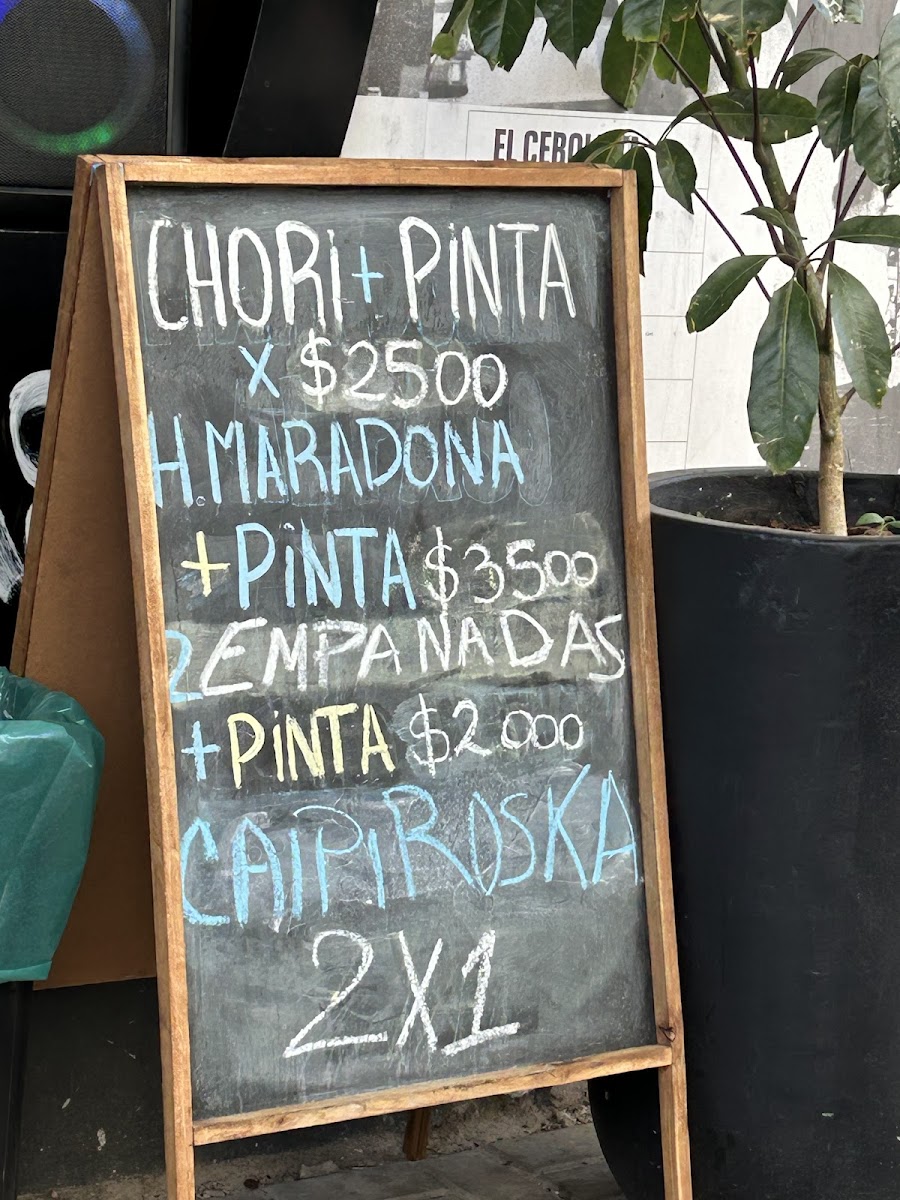 EL CEBOL
CHORI + PINTA
X $2500
H. MARADONA
+ PINTA $3500
2 EMPANADAS
+ PINTA $2000
CAIPIROSKA
2X1